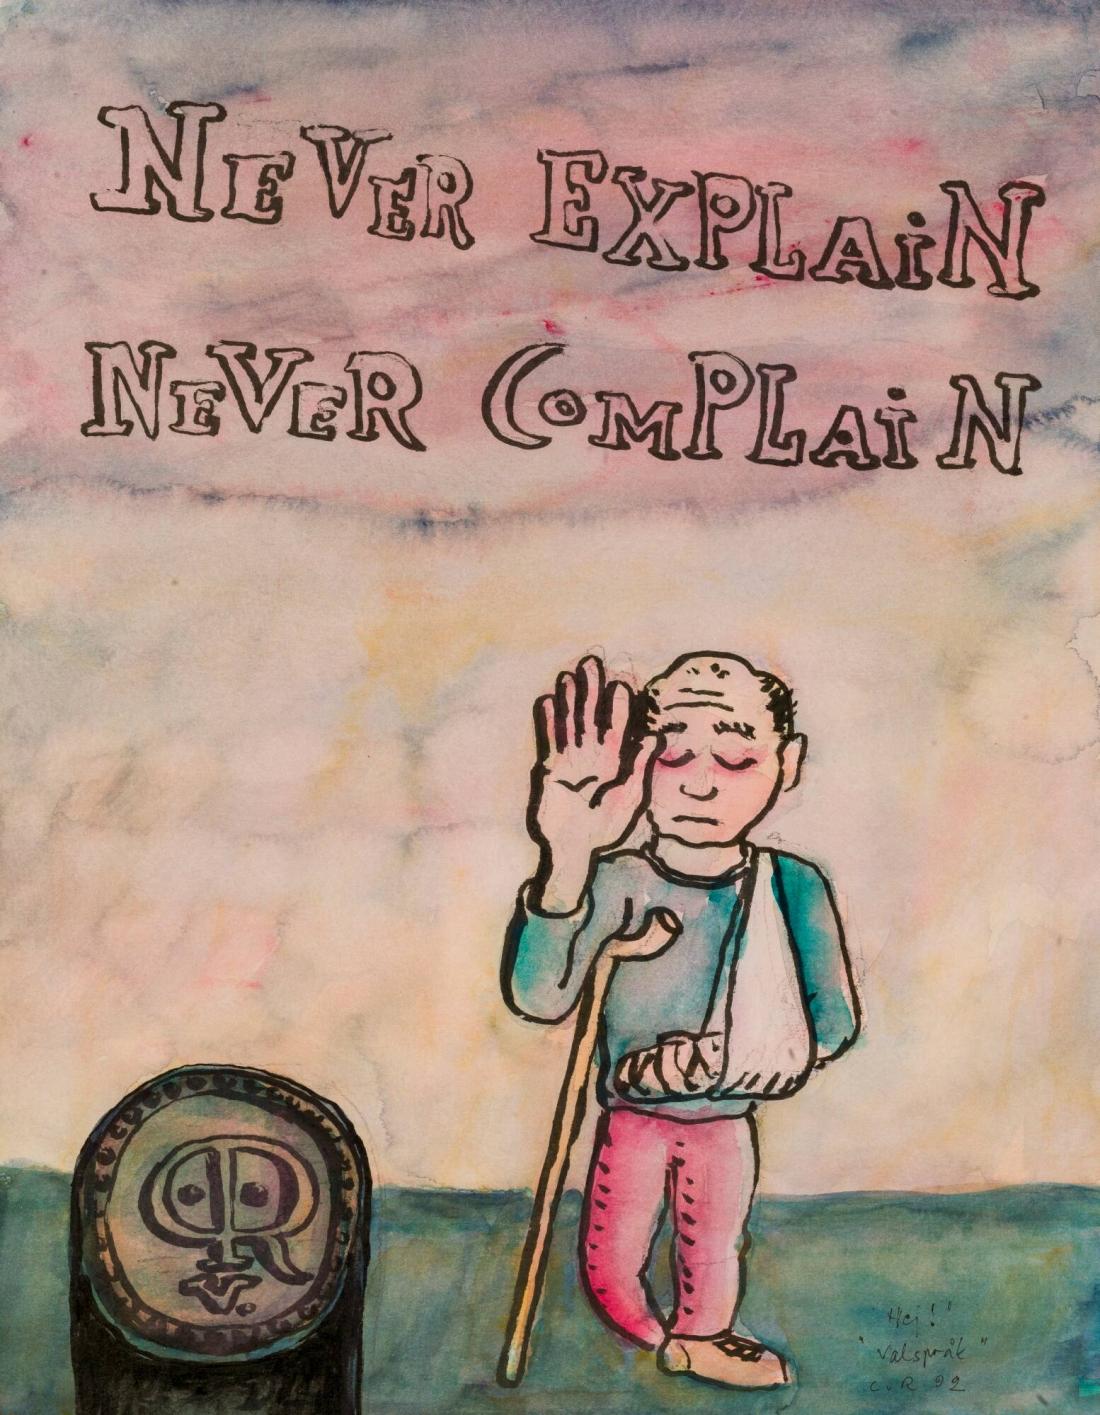 NEVER EXPLAiN
NEVER COMPLAiN
"Hej!"
"valspråk"
C.v.R 92